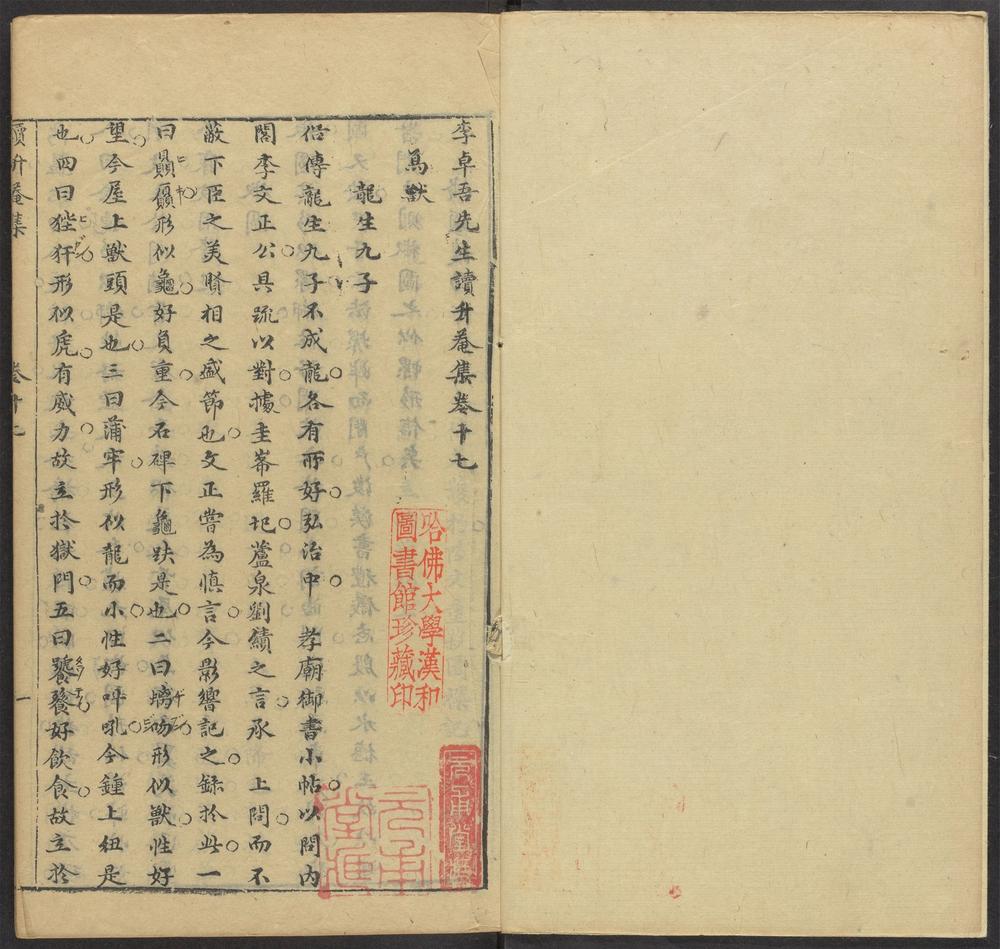 李卓吾先生讀升菴集卷十七
鳥獸
龍生九子
俗傳龍生九子不成龍各有所好弘治中 孝廟御書小帖以問內
閣李文正公具疏以對據圭峯羅玘蘆泉劉績之言承 上問而不
蔽下臣之美賢相之盛節也文正嘗為慎言今影響記之錄於此一
曰贔屭形似龜好負重今石碑下龜趺是也二曰螭吻形似獸性好
望今屋上獸頭是也三曰蒲牢形似龍而小性好吽吼今鐘上紐是
也四曰狴犴形似虎有威力故立於獄門五曰饕餮好飲食故立於
讀升菴集
卷十七
一
哈佛大學漢和
圖書館珍藏印